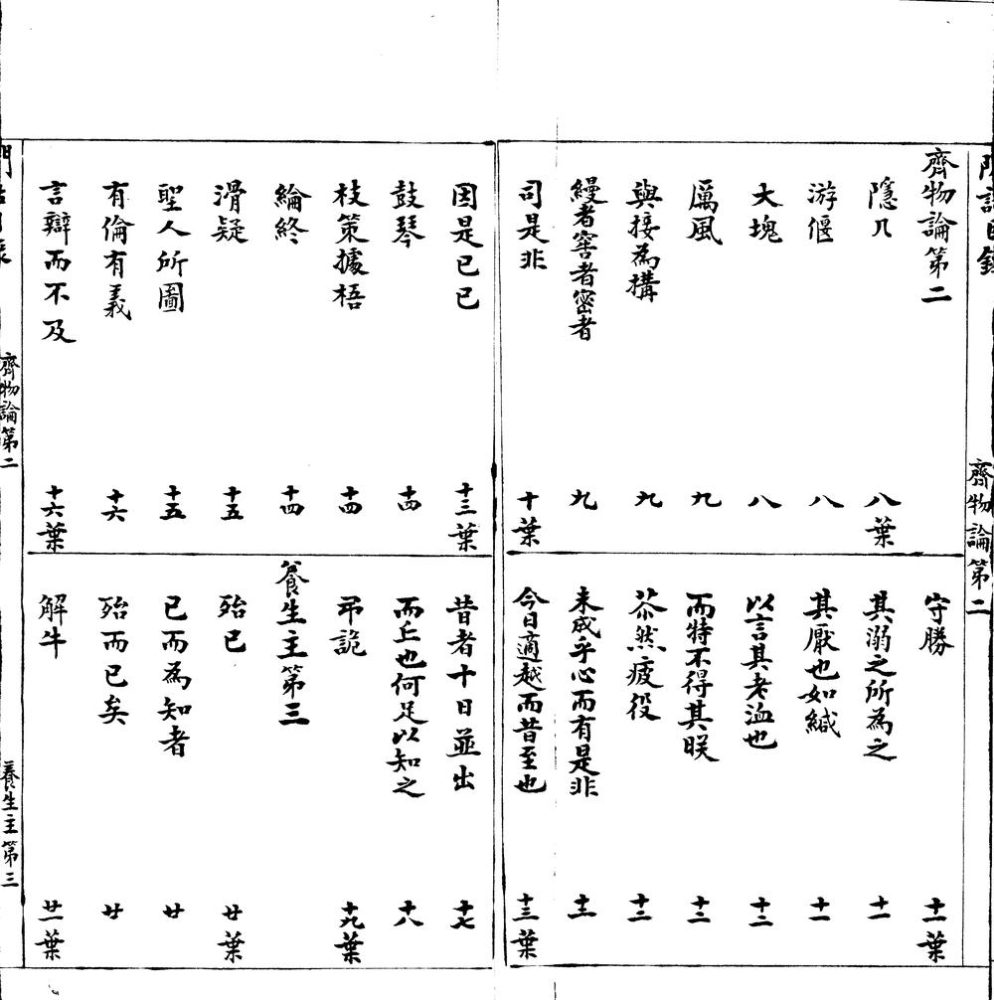 齊物論第二
齊物論第二
隱几 八葉
游偃 八
大塊 八
厲風 九
與接為構 九
縵者窖者密者 九
司是非 十葉
守勝 十一葉
其溺之所為之 十一
其厭也如緘 十一
以言其老洫也 十二
而特不得其眹 十二
苶然疲役 十二
未成乎心而有是非 十三
今日適越而昔至也 十三葉
因是已已 十三葉
鼓琴 十四
枝策據梧 十四
綸終 十四
滑疑 十五
聖人所圖 十五
有倫有義 十六
言辯而不及 十六葉
昔者十日並出 十七
而丘也何足以知之 十八
弔詭 十九葉
養生主第三
殆已 廿葉
已而為知者 廿
殆而已矣 廿
解牛 廿一葉
齊物論第二
養生主第三